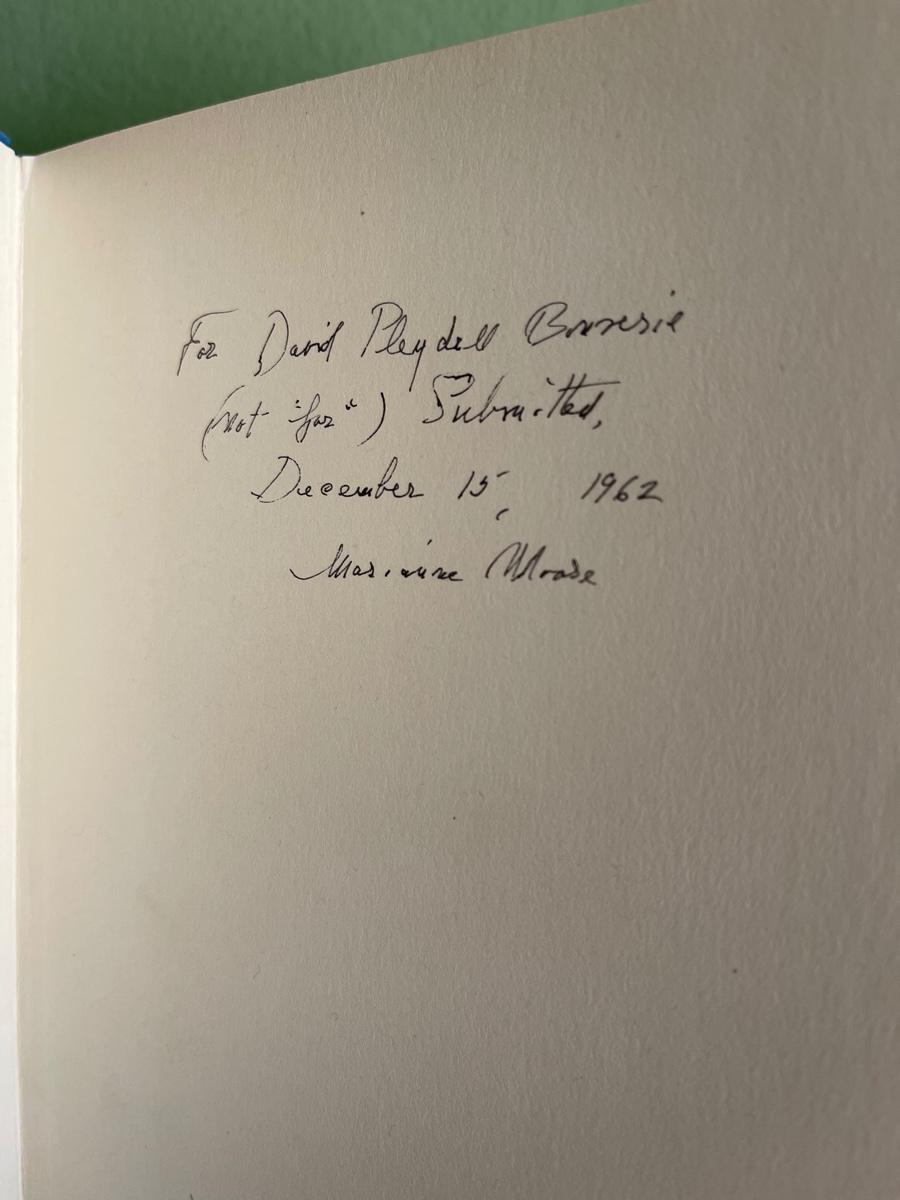 For David Pleydell Bouverie
(not "for") Submitted,
December 15, 1962
Marianne Moore